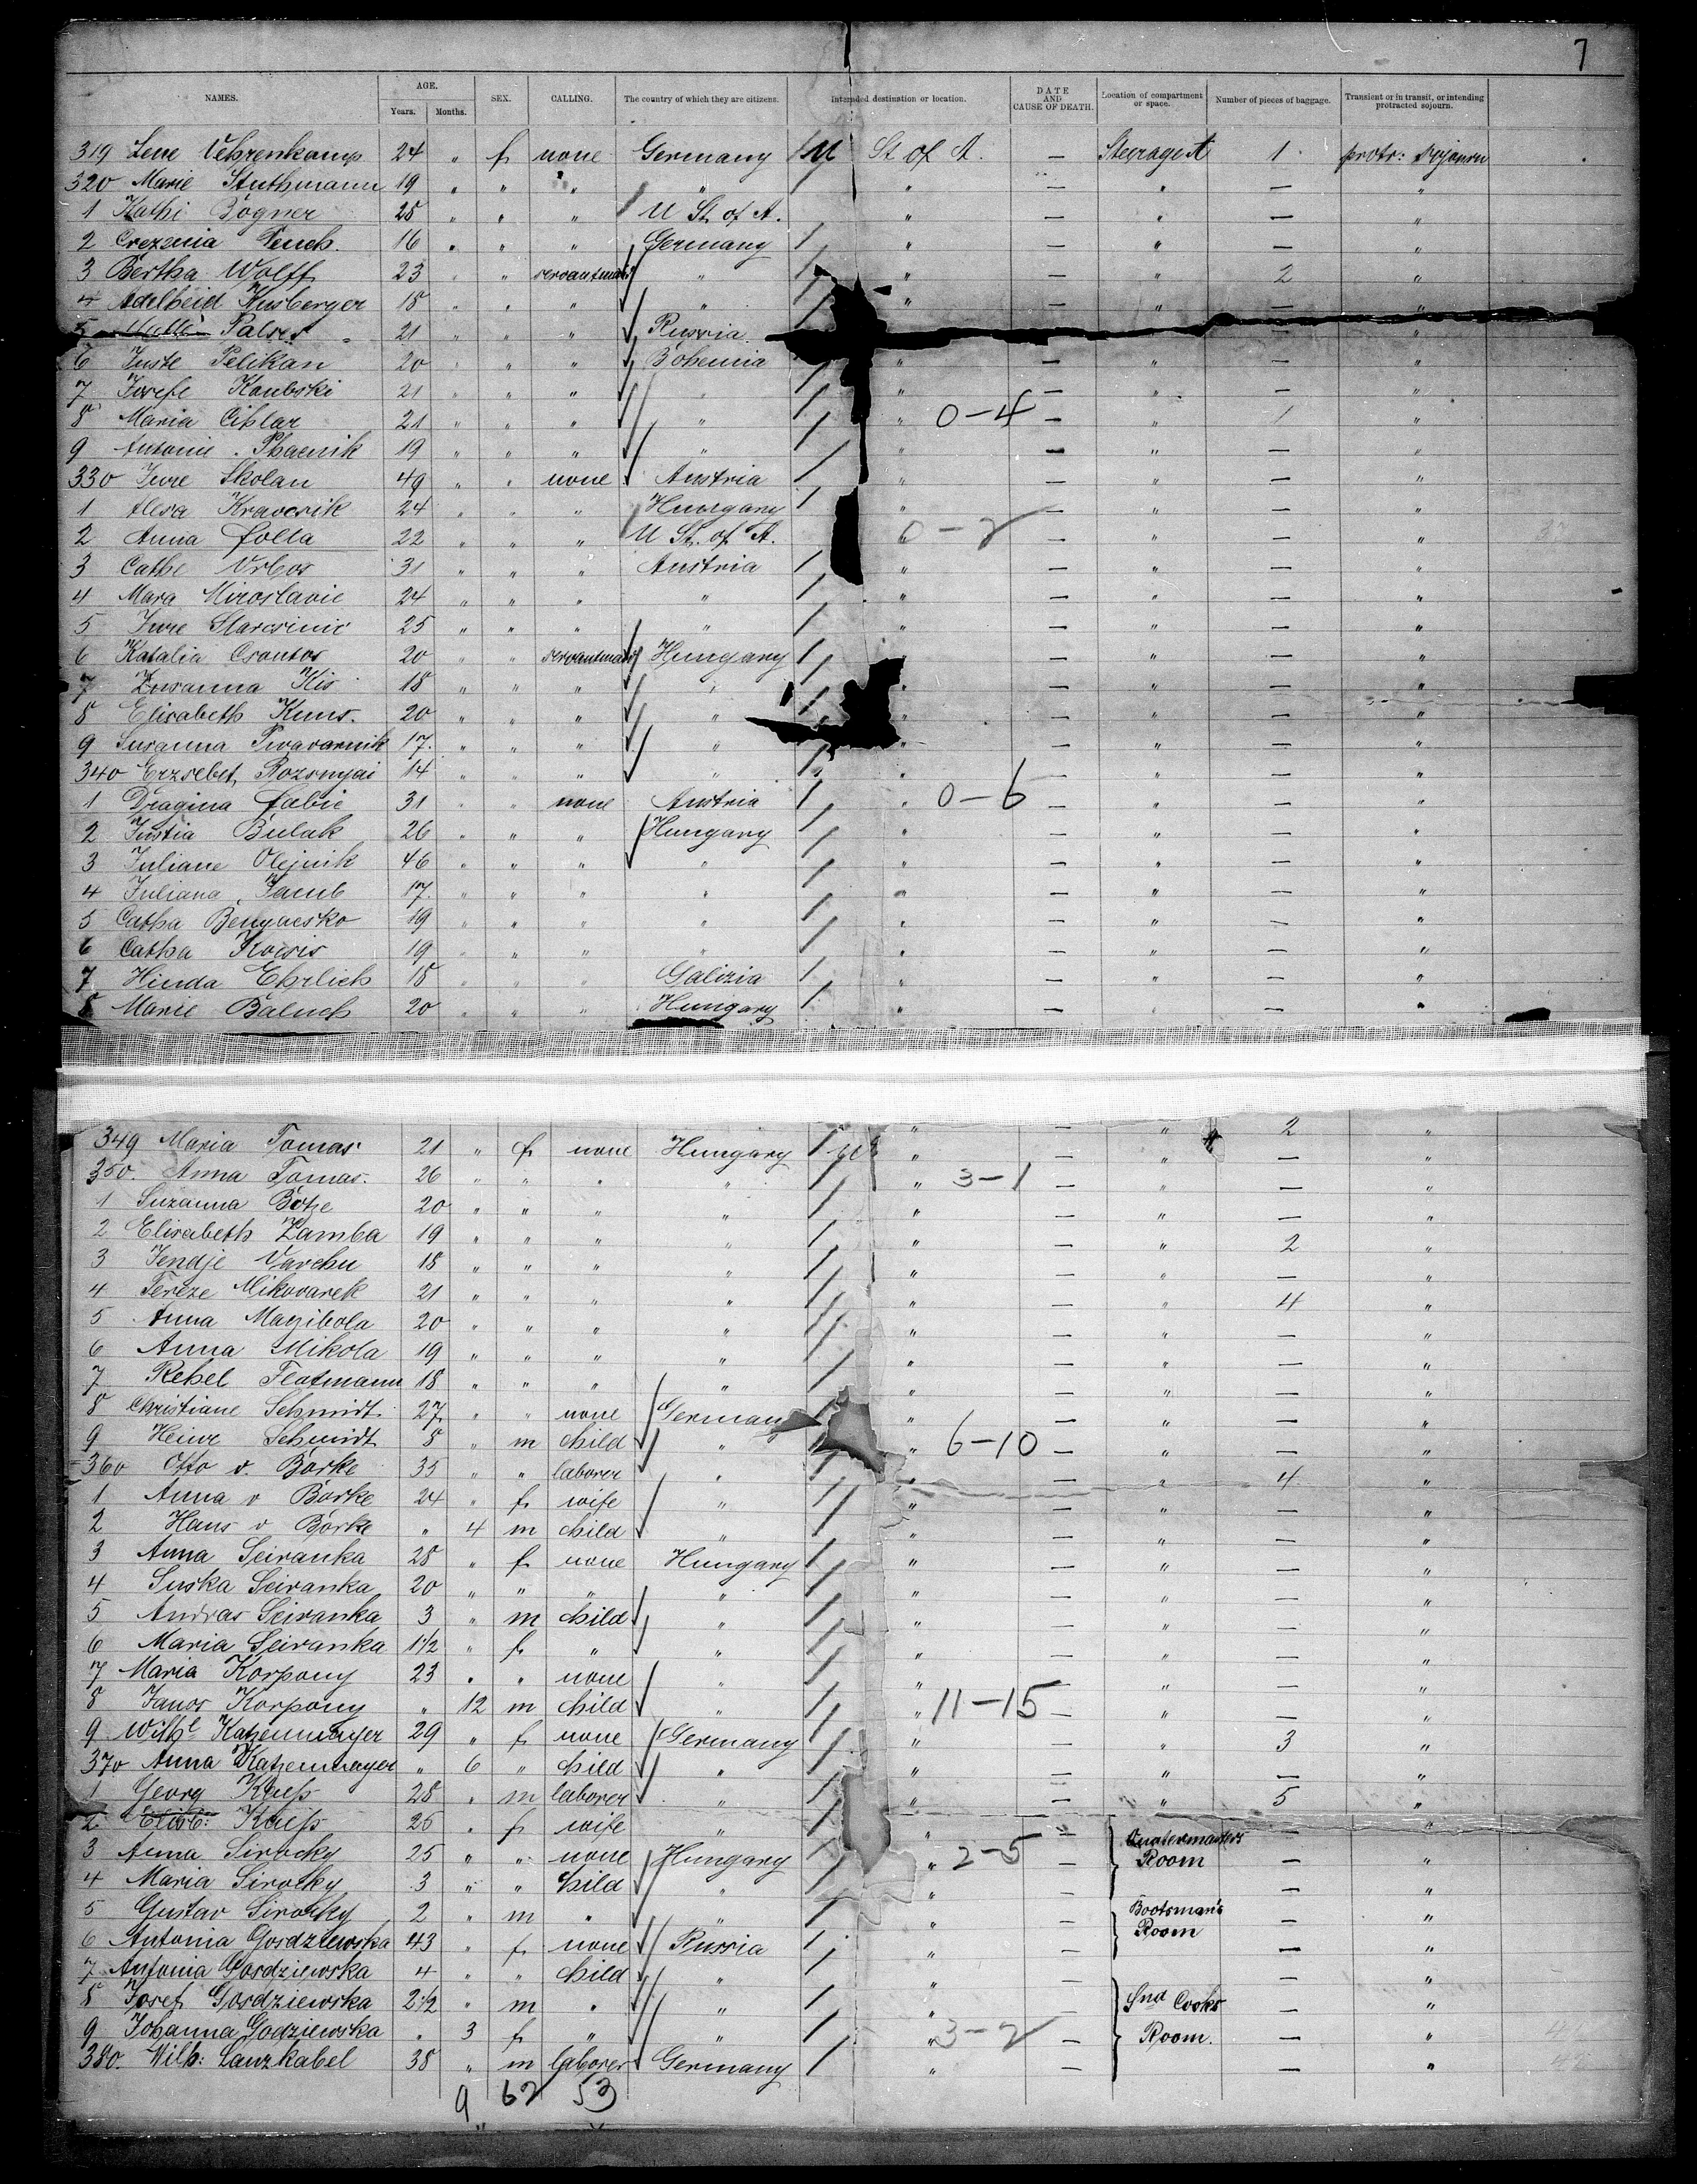 7
NAMES. AGE. Years. Months. SEX. CALLING. The country of which they are citizens. Intended destination or location. DATE AND CAUSE OF DEATH. Location of compartment or space. Number of pieces of baggage. Transient or in transit, or intending protracted sojourn.
319 Lene Vehrenkamp 24 " f none Germany / U St of A. — Steerage A 1 protr: sojourn
320 Marie Stuthmann 19 " " " " / " — " — "
1 Kathi Bogner 28 " " " / U St. of A. " — " — "
2 Crezenia 16 " " " Germany / " — " — "
3 Bertha Wolff 23 " " servantmaid " / " — " 2 "
4 Adelheid Kusberger 18 " " " " / " — " — "
5 21 " " " Russia / — "
6 Juste Pelikan 20 " " " Bohemia / " — " — "
7 Josefe Koubski 21 " " " " / " — " — "
8 Maria Cihlar 21 " " " " / " 0-4 — " / "
9 Antonie 19 " " " " / " — " — "
330 Jure Skolan 49 " " none Austria / " — " — "
1 Kravcsik 24 " " " Hungary / " — " — "
2 Anna Lolla 22 " " " / U St. of A. " 0-2 — " — "
3 Cathe Vrbos 31 " " " Austria / " — " — "
4 Mara Miroslavic 24 " " " " / " — " — "
5 Jure Starcsinic 25 " " " " / " — " — "
6 Katalia Csontos 20 " " servantmaid Hungary / " — " — "
7 Zusanna Kis 18 " " " " / " — " — "
8 Elisabeth Kuns. 20 " " " " / " — " — "
9 Susanna 17. " " " " / " — " — "
340 Erzsebet Rozsnyai 14 " " " " / " — " — "
1 Dragina Labic 31 " " none Austria / " 0-6 — " — "
2 Justia Bulak 26 " " " Hungary / " — " — "
3 Juliane Olejnik 46 " " " " / " — " — "
4 Juliana Jacub 17. " " " " / " — " — "
5 Catha Benyacsko 19 " " " " / " — " — "
6 Catha Kocsis 19 " " " " / " — " — "
7 Hinda Ehrlich 18 " " " Galizia / " — " — "
8 Marie Baluch 20 " " " Hungary / " — " — "
349 Maria Tomas 21 " f none Hungary / " — " 2 "
350. Anna Tomas. 26 " " " " / " 3-1 — " — "
1 Suzanna Botze 20 " " " " / " — " — "
2 Elisabeth Zamba 19 " " " " / " — " — "
3 Jendje Varchu 18 " " " " / " — " 2 "
4 Tereze Mikovarek 21 " " " " / " — " — "
5 Anna Magibola 20 " " " " / " — " 4 "
6 Anna Mikola 19 " " " " / " — " — "
7 Rebel Flatmann 18 " " " " / " — " — "
8 Christiane Schmidt. 27 " " none Germany / " — " — "
9 Heinr Schmidt 8 " m child " / " 6-10 — " — "
360 Otto v. Borke 35 " " laborer " / " — " 4 "
1 Anna v Borke 24 " f wife " / " — " — "
2 Hans v Borke " 4 m child " / " — " — "
3 Anna Seivanka 28 " f none Hungary / " — " — "
4 Suska Seivanka 20 " " " " / " — " — "
5 Andras Seivanka 3 " m child " / " — " — "
6 Maria Seivanka 1 1/2 " f " " / " — " — "
7 Maria Korpony 23 " " none " / " — " — "
8 Janos Korpony " 12 m child " / " 11-15 — " — "
9 Wilhe Katzenmayer 29 " f none Germany / " — " 3 "
370 Anna Katzenmayer " 6 " child " / " — " — "
1 Georg 28 " m laborer " / " — " 5 "
2 25 " f wife " / " — — "
3 Anna Sirocky 25 " " none Hungary / " 2-5 — Quatermasters Room — "
4 Maria Sirocky 3 " " child " / " — — "
5 Gustav Sirocky 2 " m " " / " — Bootsman's Room — "
6 Antonia Gosdziewska 43 " f none Russia / " — — "
7 Antonia Gosdziewska 4 " " child " / " —
8 Josef Gosdziewska 2 1/2 " m " " / " — Snd Cooks — "
9 Johanna Godziewska " 3 f " " / " 3-2 — Room. — "
380. Wilh: Lanzkabel 38 " m laborer Germany / " — — "
9 62 53